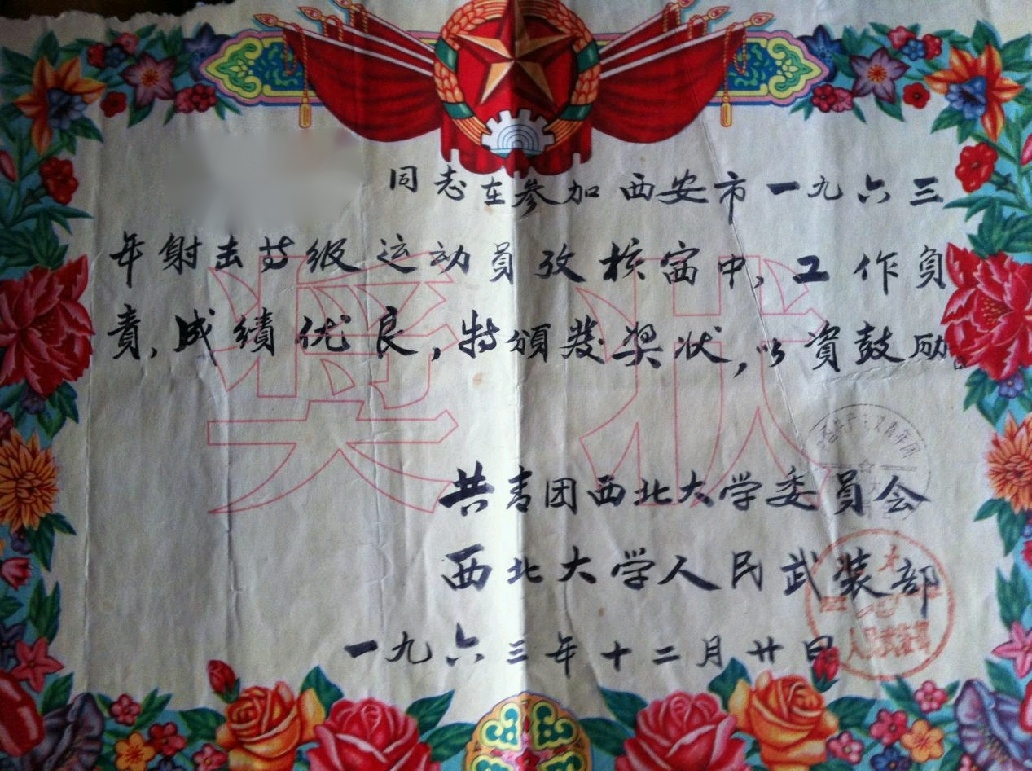 同志在参加西安市一九六三
年射击等级运动员攷核宙中，工作負
責，成績优良，特頒发奖状，以資鼓励。
奖状
共青团西北大学委員会
西北大学人民武装部
一九六三年十二月廿日
人民武装部